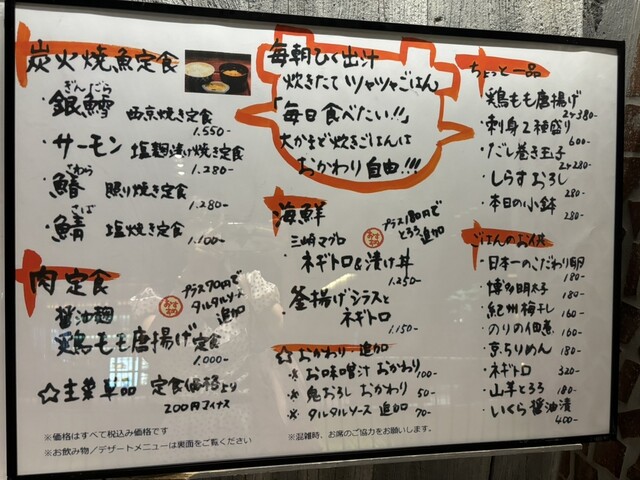 炭火焼魚定食
・銀鱈 西京焼き定食 1.550-
ぎんだら
・サーモン 塩麹漬け焼き定食 1.280-
・鰆 照り焼き定食 1.280-
さわら
・鯖 塩焼き定食 1.100-
さば
肉定食
おすすめ
プラス90円で
タルタルソース
追加
醤油麹
鶏もも唐揚げ定食
1.000-
☆主菜単品 定食価格より
200円マイナス
※価格はすべて税込み価格です
※お飲み物/デザートメニューは裏面をご覧ください
毎朝ひく出汁
炊きたてツヤツヤごはん
「毎日食べたい!!」
大かまど炊きごはんは
おかわり自由!!!
海鮮
おすすめ
プラス180円で
とろろ追加
三崎マグロ
・ネギトロ&漬け丼
1.250-
・釜揚げシラスと
ネギトロ
1.150-
☆おかわり・追加
※お味噌汁 おかわり 100-
※鬼おろし おかわり 50-
※タルタルソース 追加 70-
※混雑時、お席のご協力をお願いします。
ちょっと一品
・鶏もも唐揚げ
2ヶ380-
・刺身2種盛り
600-
・だし巻き玉子
2ヶ280-
・しらすおろし
280-
・本日の小鉢
280-
ごはんのお供
・日本一のこだわり卵 180-
・博多明太子 180-
・紀州梅干し 160-
・のりの佃煮 160-
・京ちりめん 180-
・ネギトロ 320-
・山芋とろろ 180-
・いくら醤油漬
400-